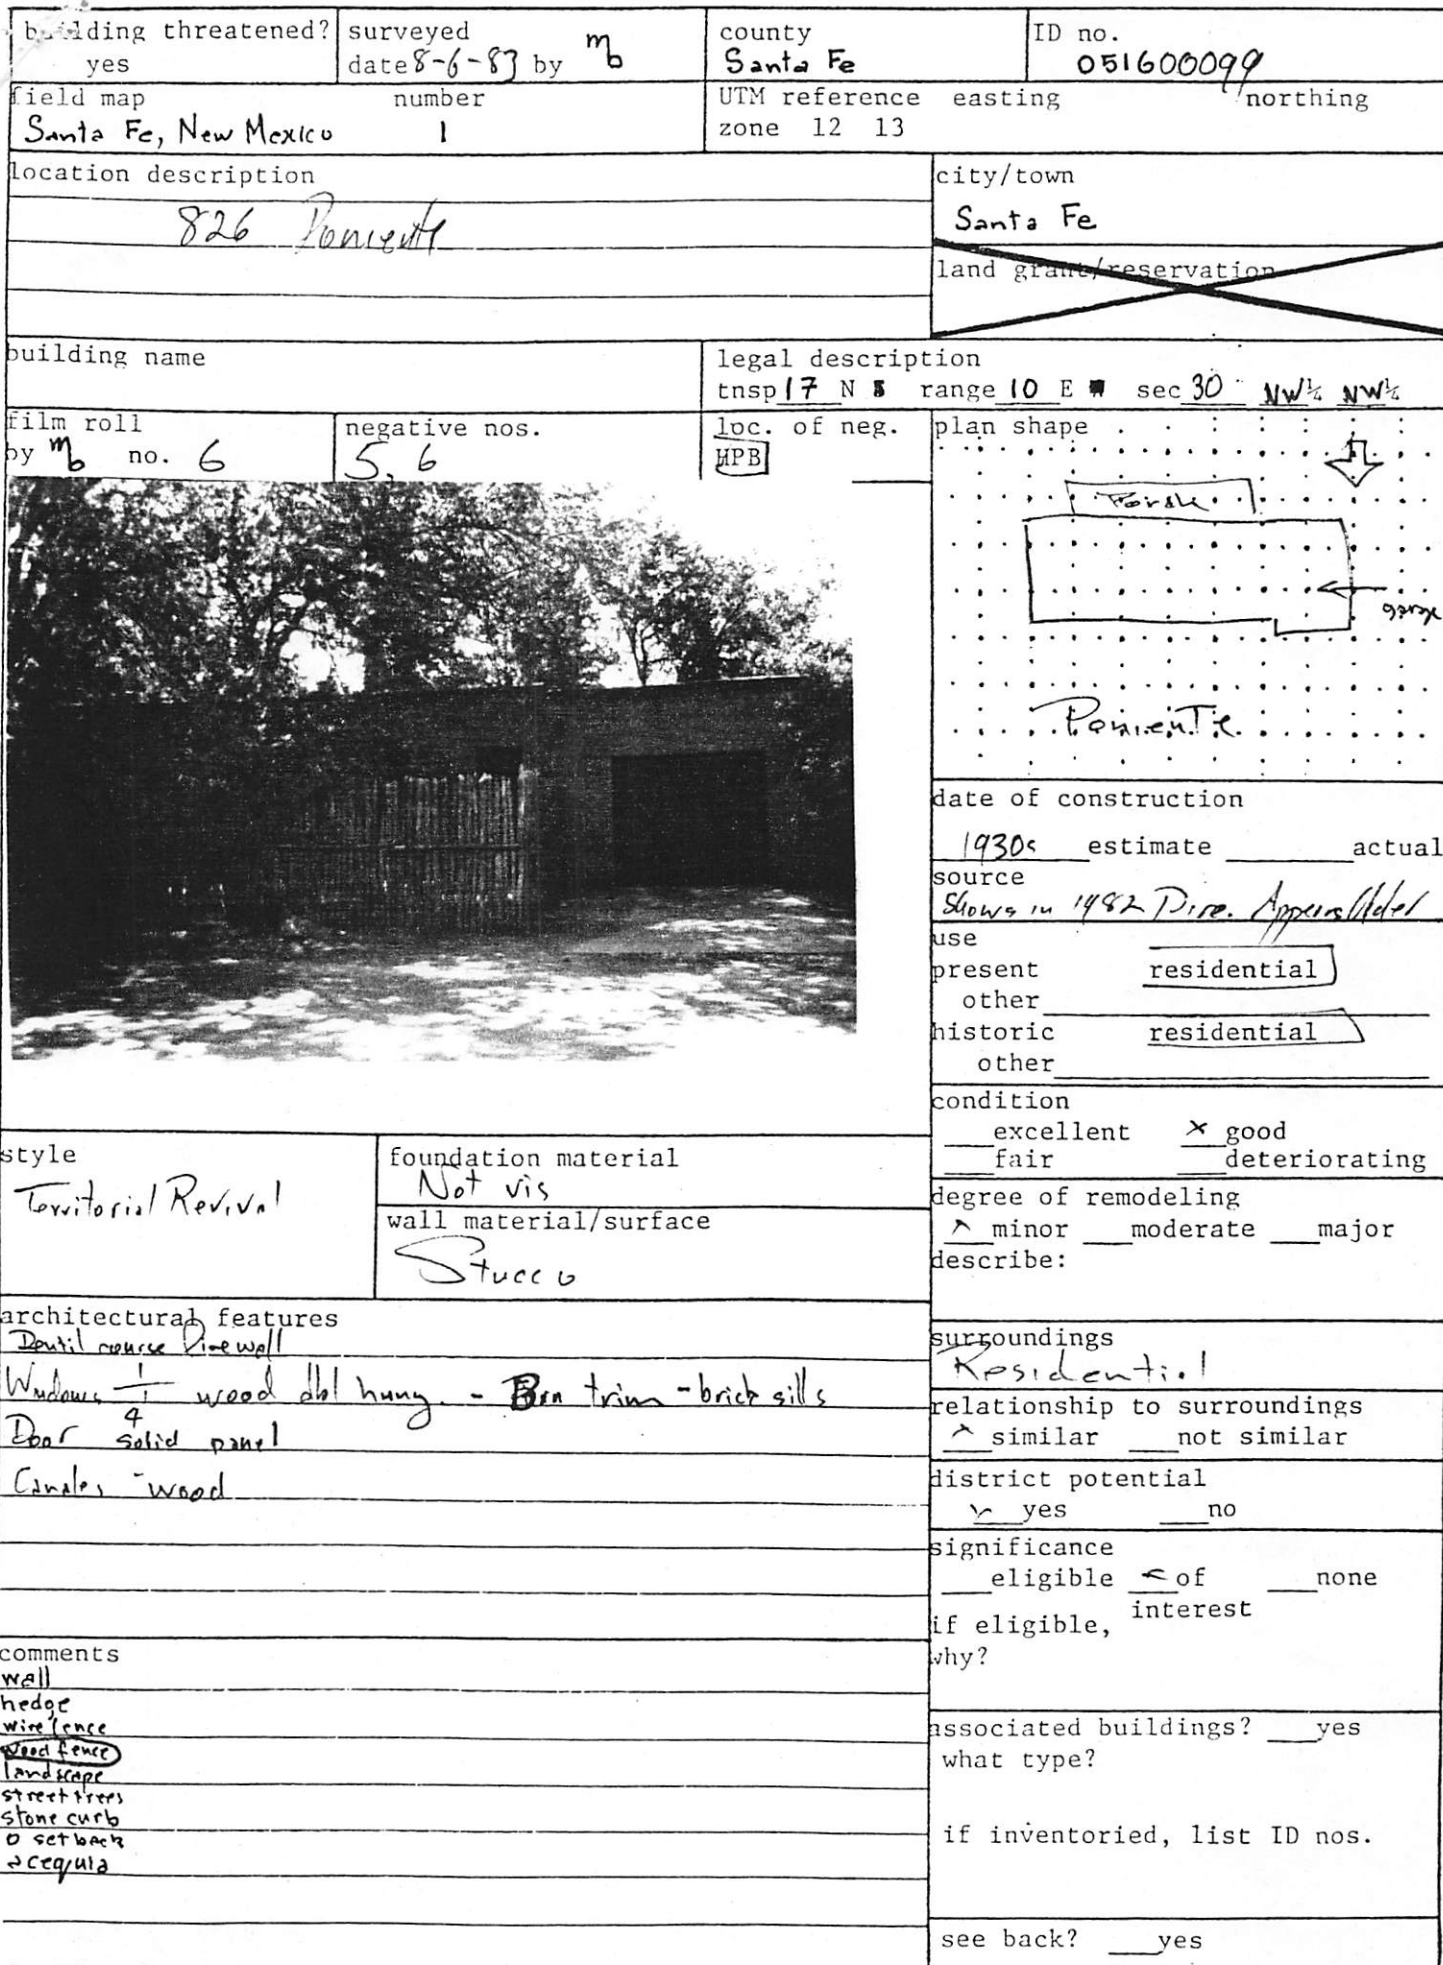 building threatened?
yes
surveyed
date 8-6-83 by mb
county
Santa Fe
ID no.
051600099
field map number
Santa Fe, New Mexico 1
UTM reference easting northing
zone 12 13
location description
826 Poniente
city/town
Santa Fe
land grant/reservation
building name
legal description
tnsp 17 N range 10 E sec 30 NW¼ NW¼
film roll
by mb no. 6
negative nos.
5, 6
loc. of neg.
HPB
plan shape
garage
Poniente
date of construction
1930s estimate actual
source
Shows in 1982 Dire. Appears Older
use
present residential
other
historic residential
other
condition
excellent × good
fair deteriorating
style
Territorial Revival
foundation material
Not vis
wall material/surface
Stucco
degree of remodeling
minor moderate major
describe:
architectural features
Dentil course Firewall
Windows 1/1 wood dbl hung - Brn trim - brick sills
Door 4 solid panel
Canales - wood
surroundings
Residential
relationship to surroundings
similar not similar
district potential
yes no
significance
eligible of none
interest
if eligible,
why?
comments
wall
hedge
wire fence
wood fence
landscape
street trees
stone curb
0 setback
acequia
associated buildings? yes
what type?
if inventoried, list ID nos.
see back? yes